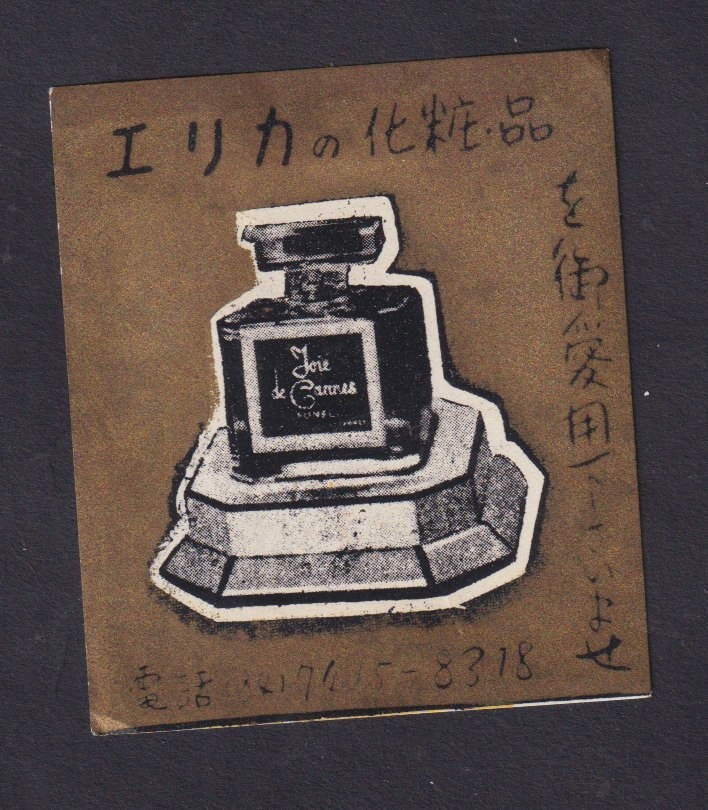 エリカの化粧品
を御愛用下さいませ
Joie
de Cannes
電話
-8318